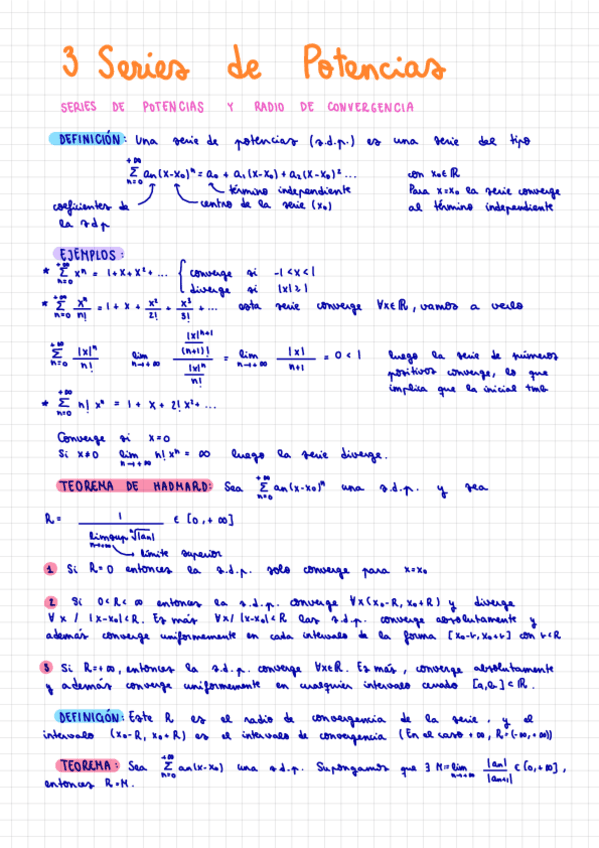 3 Series de Potencias
SERIES DE POTENCIAS Y RADIO DE CONVERGENCIA
DEFINICIÓN: Una serie de potencias (s.d.p.) es una serie del tipo
+∞ Σ n=0 an(x-x₀)ⁿ = a₀ + a₁(x-x₀) + a₂(x-x₀)² ... con x₀∈ℝ
término independiente Para x=x₀ la serie converge
coeficientes de centro de la serie (x₀) al término independiente
la s.d.p
EJEMPLOS:
* +∞ Σ n=0 xⁿ = 1+x+x²+... { converge si -1<x<1
diverge si |x|≥1
* +∞ Σ n=0 xⁿ/n! = 1+x+ x²/2! + x³/3! + ... esta serie converge ∀x∈ℝ, vamos a verlo
+∞ Σ n=0 |x|ⁿ/n! lim n→+∞ (|x|ⁿ⁺¹/(n+1)!)/(|x|ⁿ/n!) = lim n→+∞ |x|/(n+1) = 0 < 1 luego la serie de números
positivos converge, lo que
implica que la inicial tmb
* +∞ Σ n=0 n! xⁿ = 1 + x + 2! x² + ...
Converge si x=0
Si x≠0 lim n→+∞ n! xⁿ = ∞ luego la serie diverge.
TEOREMA DE HADMARD: Sea +∞ Σ n=0 an(x-x₀)ⁿ una s.d.p. y sea
R = 1/(limsup n→+∞ ⁿ√|an|) ∈ [0,+∞]
límite superior
1 Si R=0 entonces la s.d.p. solo converge para x=x₀
2 Si 0<R<∞ entonces la s.d.p. converge ∀x(x₀-R, x₀+R) y diverge
∀x / |x-x₀|<R. Es más ∀x/ |x-x₀|<R las s.d.p. converge absolutamente y
además converge uniformemente en cada intervalo de la forma [x₀-r, x₀+r] con r<R
3 Si R=+∞, entonces la s.d.p. converge ∀x∈ℝ. Es más, converge absolutamente
y además converge uniformemente en cualquier intervalo cerrado [a,b]⊂ℝ.
DEFINICIÓN: Este R es el radio de convergencia de la serie, y el
intervalo (x₀-R, x₀+R) es el intervalo de convergencia (En el caso +∞, R=(-∞,+∞))
TEOREMA: Sea +∞ Σ n=0 an(x-x₀) una s.d.p. Supongamos que ∃ M=lim n→+∞ |an|/|an+1| ∈ [0,+∞],
entonces R=M.